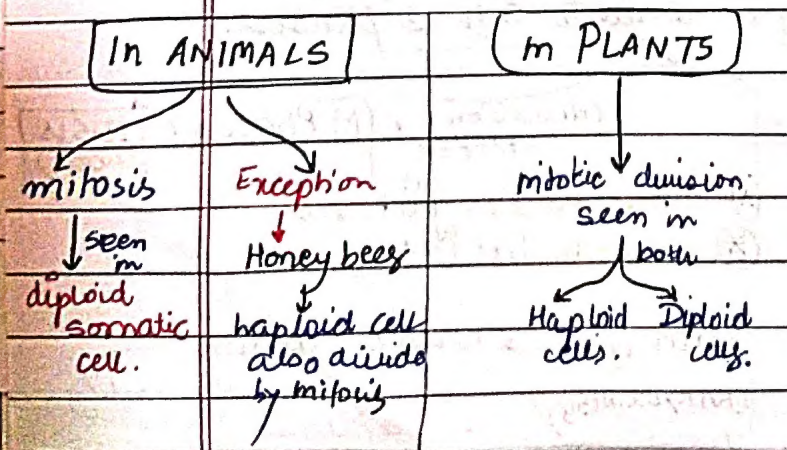 In ANIMALS
mitosis
seen
in
diploid
somatic
cell.
Exception
Honey bees
haploid cell
also divide
by mitosis
in PLANTS
mitotic division
seen in
both
Haploid
cells.
Diploid
cells.